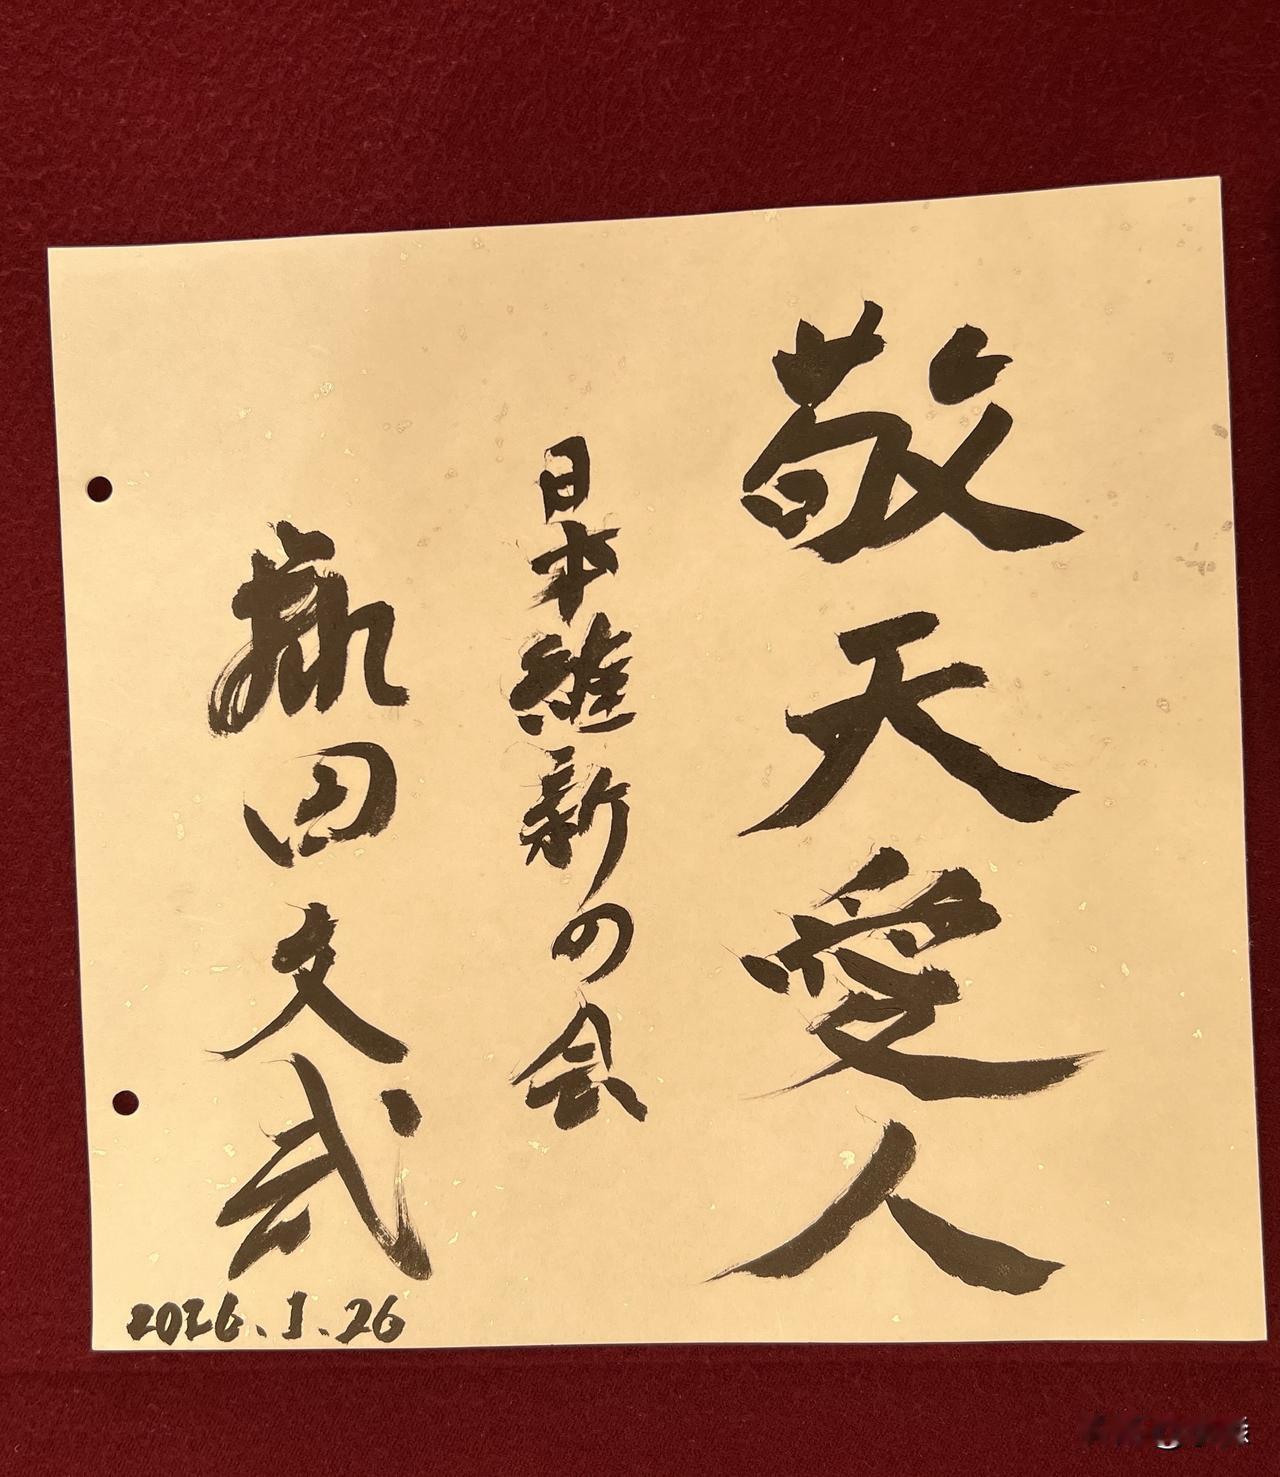 敬天愛人
日本維新の会
藤田文武
2026.1.26